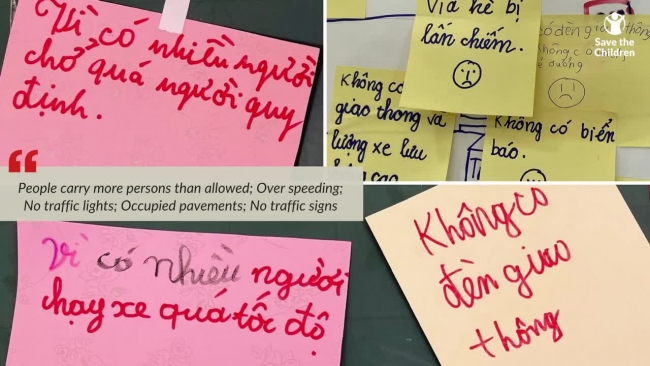 Vì có nhiều người
chở quá người quy
định.
Vỉa hè bị
lấn chiếm.
có đèn giao thông
không có
đường
Không có
giao thông và
lượng xe lưu
cao
Không có biển
báo.
Save the
Children
People carry more persons than allowed; Over speeding;
No traffic lights; Occupied pavements; No traffic signs
Vì có nhiều người
chạy xe quá tốc độ.
Không có
đèn giao
thông